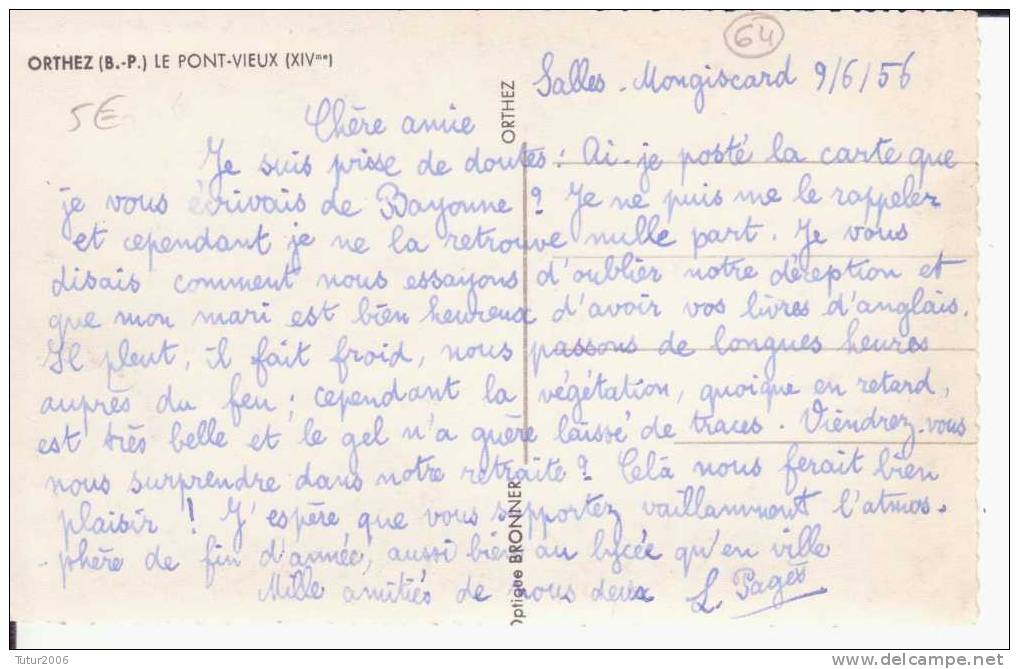 64
ORTHEZ (B.-P.) LE PONT-VIEUX (XIVme)
5€
Salles - Mongiscard 9/6/56
Chère amie
Je suis prise de doutes : Ai-je posté la carte que
je vous écrivais de Bayonne ? Je ne puis me le rappeler
et cependant je ne la retrouve nulle part. Je vous
disais comment nous essayons d'oublier notre déception et
que mon mari est bien heureux d'avoir vos livres d'anglais.
Il pleut, il fait froid, nous passons de longues heures
auprès du feu ; cependant la végétation, quoique en retard,
est très belle et le gel n'a guère laissé de traces. Viendrez-vous
nous surprendre dans notre retraite ? Celà nous ferait bien
plaisir ! J'espère que vous supportez vaillamment l'atmos-
-phère de fin d'année, aussi bien au lycée qu'en ville
Mille amitiés de nous deux L. Pagès
Optique BRONNER ORTHEZ
Tutur2006
www.delcampe.net